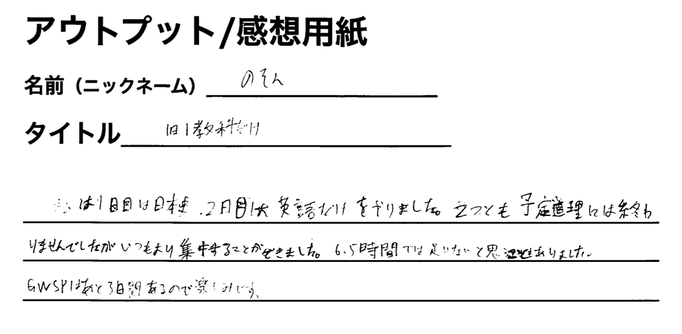 アウトプット/感想用紙
名前（ニックネーム） のそん
タイトル 1日1教科だけ
は1日目は日本史、2日目は英語だけをやりました。2つとも予定通理には終わ
りませんでしたがいつもより集中することができました。6.5時間では足りないと思
GWSPはあと3日間あるので楽しみです。